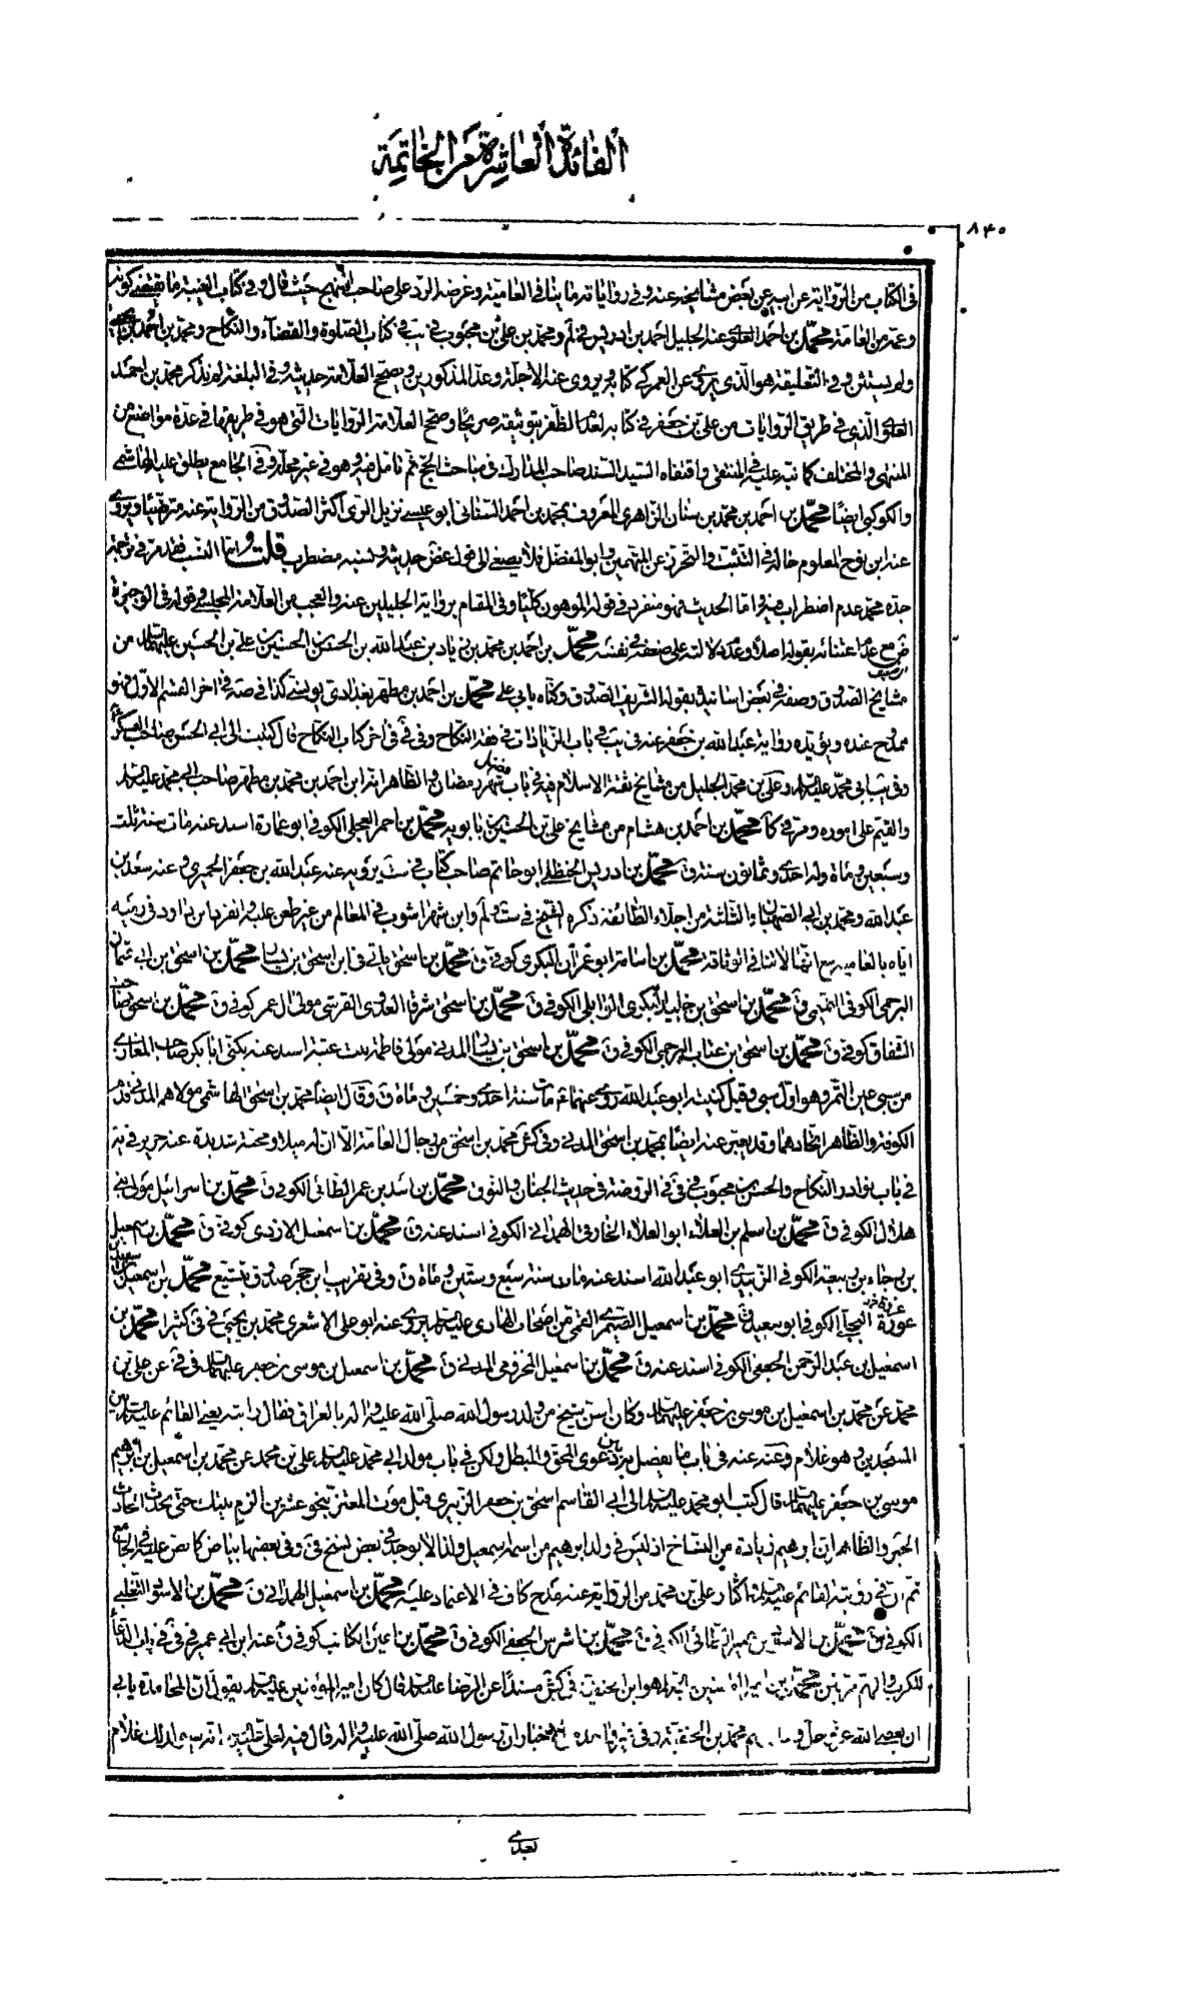 الفائدة العاشرة من الخاتمة
٨٤٠
في الكتاب من الرواية عن ابيه عن بعض مشايخه عنه وفي رواياته ما ينافي العامية وغرضه الرد على صاحب المنهج حيث قال وفي كتاب الغيبة ما يقتضي كونه
وعمه من العامة محمد بن احمد العلوي عنه الجليل احمد بن ادريس في لم ومحمد بن علي بن محبوب في يب في كتاب الصلوة والقضاء والنكاح ومحمد بن احمد بن يحيى
ولم يستثن وفي التعليقة هو الذي يروي عن العمركي كتابه ويروي عنه الاجلة وعد المذكورين ويصحح العلامة حديثه وفي البلغة لم يذكر محمد بن احمد
العلوي الذي في طريق الروايات من علي بن جعفر في كتابه لعدم الظفر بتوثيقه صريحا وصحح العلامة الروايات التي هو في طريقها في عدة مواضع من
المنتهى والمختلف كما نبه عليه في المنتقى واقتفاه السيد السند صاحب المدارك في مباحث الحج ثم تأمل فيه وهو في غير محله وفي الجامع يطلق عليه الهاشمي
والكوكبي ايضا محمد بن احمد بن محمد بن سنان الزاهري المعروف بمحمد بن احمد السناني ابو عيسى نزيل الري اكثر الصدوق من الرواية عنه مترضيا ويروي
عنه ابن نوح المعلوم حاله في التثبت والتحرز عن المتهمين وابو المفضل فلا يصغى الى قول غض حديثه ونسبه مضطرب قلت اما النسب فقد مر في ترجمة
جده محمد عدم اضطراب فيه واما الحديث فهو منفرد في قوله الموهون كليا وفي المقام برواية الجليلين عنه والعجب من العلامة المجلسي وقوله في الوجيزة
ض مع عدم اعتنائه بقوله اصلا وعدم دلالته على ضعفه في نفسه محمد بن احمد بن محمد بن زياد بن عبد الله بن الحسن بن الحسين بن علي بن الحسين عليهما السلام من
مشايخ الصدوق وصفه في بعض اسانيده بقوله الشريف الصدوق وكناه بابي علي محمد بن احمد بن مطهر بغدادي يونسي كذا في صه في اخر القسم الاول فهو
ممدوح عنده ويؤيده رواية عبد الله بن جعفر عنه في يب في باب الزيادات في فقه النكاح وفي في في آخر كتاب النكاح قال كتبت الى ابي الحسن صاحب العسكر
وفي يب ابي محمد عليه السلام وعلي بن محمد الجليل من مشايخ ثقة الاسلام فيه في باب فضل شهر رمضان والظاهر انه ابن احمد بن محمد بن مطهر صاحب ابي محمد عليه السلام
والقيم على اموره ومر في كا محمد بن احمد بن هشام من مشايخ علي بن الحسين بن بابويه محمد بن احمر العجلي الكوفي ابو عمارة اسند عنه مات سنة ثلث
وسبعين ومأة وله احدى وثمانون سنة ق محمد بن ادريس الحنظلي ابو حاتم صاحب كتاب في ست يرويه عنه عبد الله بن جعفر الحميري وعنه سعد بن
عبد الله ومحمد بن ابي الصهبان والثلثة من اجلاء الطائفة ذكره الشيخ في ست ولم وابن شهراشوب في المعالم من غير طعن عليه وانفرد ابن داود في رميه
اياه بالعامية مع انها لا تنافي الوثاقة محمد بن اسامة ابو عمران البكري كوفي ق محمد بن اسحق ياتي في ابن اسحق بن يسار محمد بن اسحق بن ابي عثمان
البرجمي الكوفي التميمي ق محمد بن اسحق بن خليد البكري الوابلي الكوفي ق محمد بن اسحق اشرف العدوي القرشي مولى ال عمر كوفي ق محمد بن اسحق صاحب
الثقات كوفي ق محمد بن اسحق بن عتاب البرجمي الكوفي ق محمد بن اسحق بن يسار المدني مولى فاطمة بنت عتبة اسند عنه يكنى ابا بكر صاحب المغازي
من سبي عين التمر وهو اول سبي وقيل كنيته ابو عبد الله روى عنهما ع مات سنة احدى وخمسين ومأة ق وقال ايضا محمد بن اسحق الهاشمي مولاهم المدني قدم
الكوفة والظاهر اتحادهما وقد يعبر عنه ايضا بمحمد بن اسحق المدني وفي كش محمد بن اسحق من رجال العامة الا ان له ميلا ومحبة شديدة عنه حريز في يه
في باب نوادر النكاح والحسن بن محبوب في في في الروضة في حديث الجنان والنوق محمد بن اسد بن عمر الطائي الكوفي ق محمد بن اسرائيل مولى بني
هلال الكوفي ق محمد بن اسلم بن العلاء ابو العلاء الخارفي الهمداني الكوفي اسند عنه ق محمد بن اسمعيل الازدي كوفي ق محمد بن اسمعيل
بن رجاء بن ربيعة الكوفي الزبيدي ابو عبد الله اسند عنه مات سنة سبع وستين ومأة ق وفي تقريب ابن حجر صدوق يتشيع محمد بن اسمعيل بن سعيد بن
عزرة البجلي الكوفي ابو سعيد ق محمد بن اسمعيل الصيمري القمي من اصحاب الهادي عليه السلام يروي عنه ابو علي الاشعري محمد بن يحيى في في كثيرا محمد بن
اسمعيل بن عبد الرحمن الجعفي الكوفي اسند عنه ق محمد بن اسمعيل المخزومي المدني ق محمد بن اسمعيل بن موسى بن جعفر عليهما السلام في في عن علي بن
محمد عن محمد بن اسمعيل بن موسى بن جعفر عليهما السلام وكان اسن شيخ من ولد رسول الله صلى الله عليه واله بالعراق فقال رايته يعني القائم عليه السلام بين
المسجدين وهو غلام وعنه عنه في باب ما يفصل به بين دعوى المحق والمبطل ولكن في باب مولد ابي محمد عليه السلام علي بن محمد عن محمد بن اسمعيل بن ابراهيم
موسى بن جعفر عليهما السلام قال كتب ابو محمد عليه السلام الى ابي القاسم اسحق بن جعفر الزبيري قبل موت المعتز بنحو عشرين الزم بيتك حتى يحدث الحادث
الخبر والظاهر ان ابراهيم زيادة من النساخ اذ ليس في ولد ابراهيم من اسمه اسمعيل ولذا لا يوجد في بعض نسخ في وفي بعضها بياض كما نص عليه في الجامع
ثم ان في رؤيته القائم عليه السلام واكثار علي بن محمد من الرواية عنه مدح كاف في الاعتماد عليه محمد بن اسمعيل الهمداني ق محمد بن الاسود التغلبي
الكوفي ق محمد بن الاشعث بن عمير الهمداني الكوفي ق محمد بن اشرس الجعفي الكوفي ق محمد بن اعين الكاتب كوفي ق عنه ابن ابي عمير في في في باب الدعاء
للكرب والهم مرتين محمد بن امير المؤمنين عليه السلام هو ابن الحنفية في كش مسندا عن الرضا عليه السلام قال كان امير المؤمنين عليه السلام يقول ان المحامدة يابى
ان يعصى الله عز وجل محمد بن الحنفية وفي اخبار ان رسول الله صلى الله عليه واله قال فيه لعلي عليه السلام انه سيولد لك غلام
بعدي